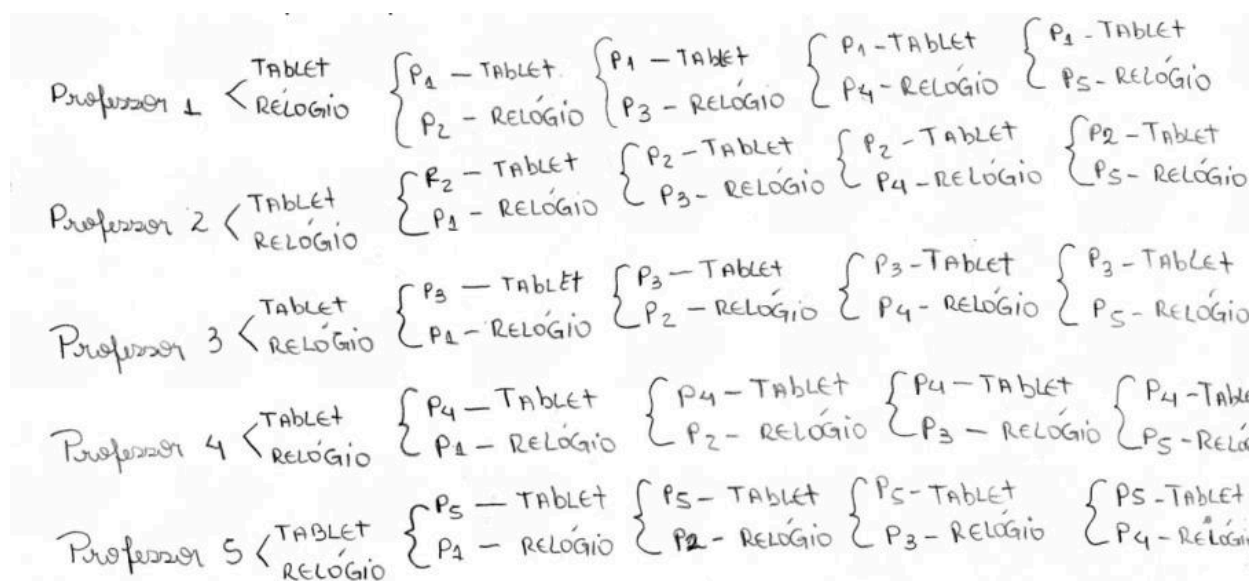 Professor 1 < TABLET RELÓGIO { P1 — TABLET P2 - RELÓGIO { P1 — TABLET P3 - RELÓGIO { P1 - TABLET P4 - RELÓGIO { P1 - TABLET P5 - RELÓGIO
Professor 2 < TABLET RELÓGIO { P2 — TABLET P1 - RELÓGIO { P2 - TABLET P3 - RELÓGIO { P2 - TABLET P4 - RELÓGIO { P2 - TABLET P5 - RELÓGIO
Professor 3 < TABLET RELÓGIO { P3 — TABLET P1 - RELÓGIO { P3 — TABLET P2 - RELÓGIO { P3 - TABLET P4 - RELÓGIO { P3 - TABLET P5 - RELÓGIO
Professor 4 < TABLET RELÓGIO { P4 — TABLET P1 - RELÓGIO { P4 - TABLET P2 - RELÓGIO { P4 — TABLET P3 — RELÓGIO { P4 - TABLE P5 - RELÓ
Professor 5 < TABLET RELÓGIO { P5 — TABLET P1 — RELÓGIO { P5 - TABLET P2 - RELÓGIO { P5 - TABLET P3 - RELÓGIO { P5 - TABLET P4 - RELÓGI